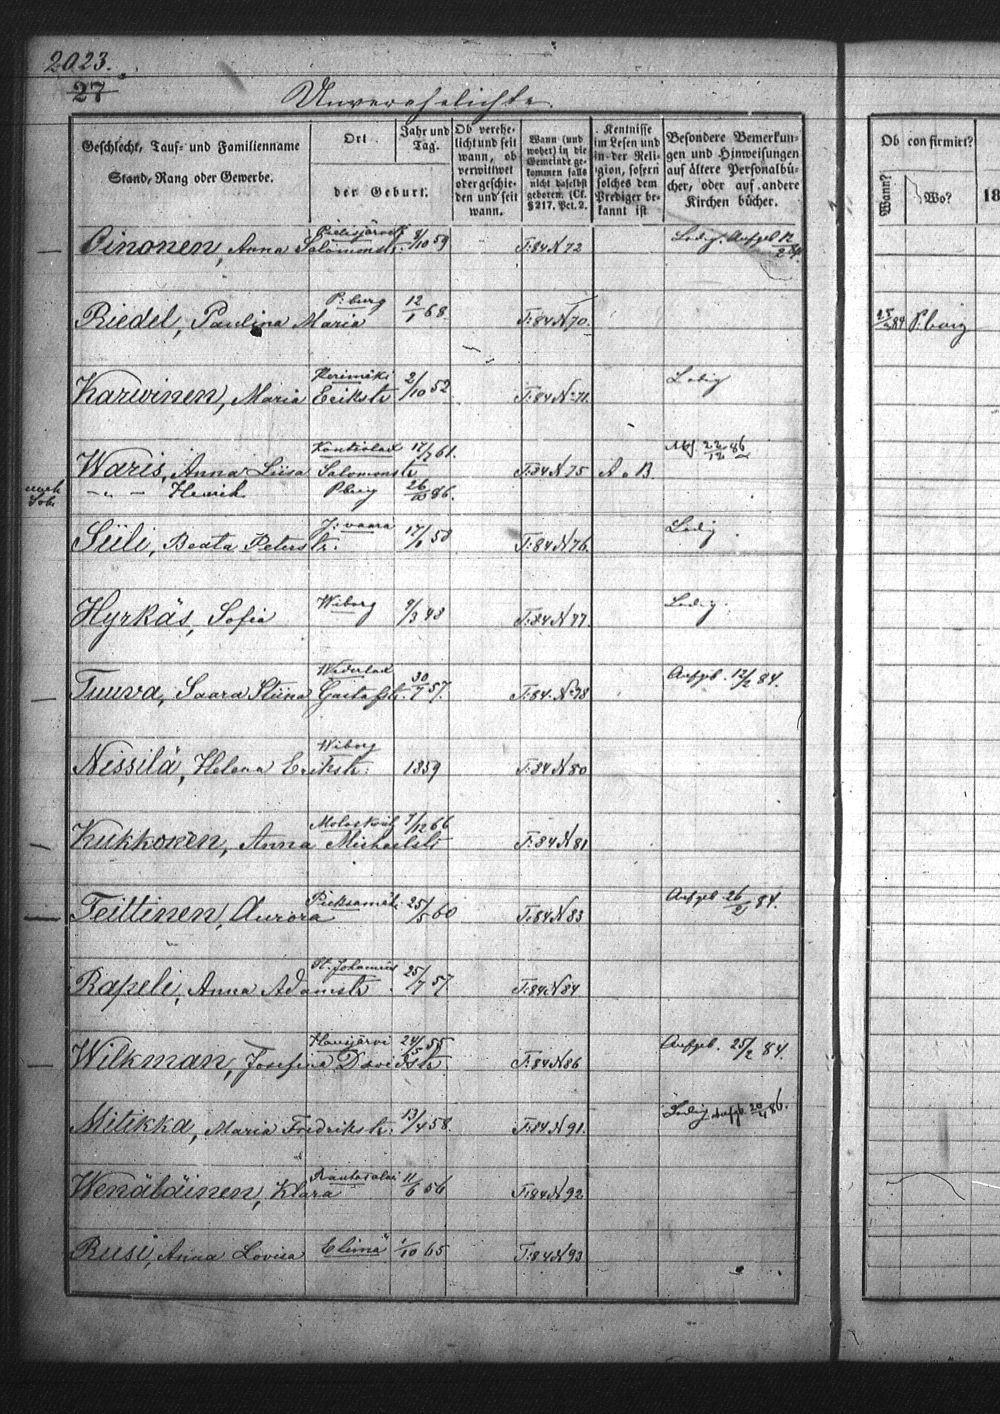 2023.
27
Unverehelichte
Geschlecht, Tauf- und Familienname
Stand, Rang oder Gewerbe.
Ort
der Geburt.
Jahr und Tag.
Ob verehelicht und seit wann, ob verwittwet oder geschieden und seit wann.
Wann (und woher) in die Gemeinde gekommen falls nicht daselbst geboren. (Cf. § 217. Pct. 2.
Kentnisse im Lesen und in der Religion, sofern solches dem Prediger bekannt ist
Besondere Bemerkungen und Hinweisungen auf ältere Personalbücher, oder auf andere Kirchen bücher.
Ob confirmirt?
Wann?
Wo?
18
Oinonen, Anna Salomonstr. Pielisjärvi 9/10 59 T:84 N 72 Ledig. Aufgeb 12/2 84.
Riedel, Paulina Maria P:burg 12/1 68 T:84 N 70. 25/ 84 P.burg
Karwinen, Maria Erikstr Kerimäki 2/10 52 T:84 N 71 Ledig
Waris, Anna Liisa Salomonstr Kontiolax 17/7 61. T:84 N 75 A. B. 22/12 86
-"- Henrik Pburg 26/10 86.
Siili, Beata Peterstr. J:vaara 17/1 58 T:84 N 76. Ledig.
Hyrkäs, Sofia Wiborg 9/3 48 T:84 N 77. Ledig.
Tuuva, Saara Stiina Gustafstr. Wederlax 30/1 57. T:84. N 78 Aufgeb. 12/2 84.
Nissilä, Helena Erikstr. Wiborg 1859 T:84 N 80
Kukkonen, Anna Michaelstr 7/12 66 T:84 N 81
Teittinen, Aurora Pieksamäki 25/5 60 T:84 N 83 Aufgeb 26/2 84.
Rapeli, Anna Adamstr St. Johannis 25/7 57 T:84 N 84
Wilkman, Josefina Davidstr Hausjärvi 24/ 55 T:84 N 86 Aufgeb. 25/2 84.
Mitikka, Maria Fredrikstr. 13/4 58. T:84 N 91. Ledig Aufgb. 20/4 86.
Wenäläinen, Klara Rautasalmi 11/6 56 T:84 N 92.
Rusi, Anna Lovisa Elimä 1/10 65 T:84 N 93